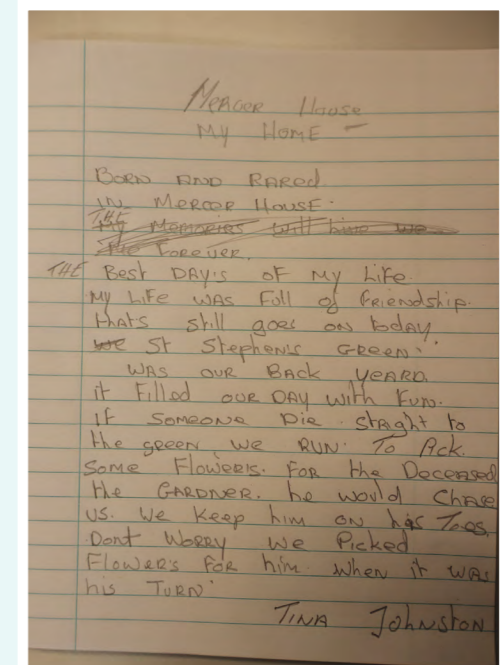 Mercer House
My Home -
Born and Rared
in Mercer House.
The
My Memories will
Forever.
The Best Day's of My Life
My Life was Full of Friendship.
that's still goes on today
we St Stephen's Green.
was our Back yeard.
it Filled our Day with Fun.
if someone Die straght to
the green we Run. To Pick
Some Flower's. For the Deceased
the Gardner. he would Chase
us. we Keep him on his Toes.
Dont Worry we Picked
Flower's For him. when it was
his Turn.
Tina Johnston